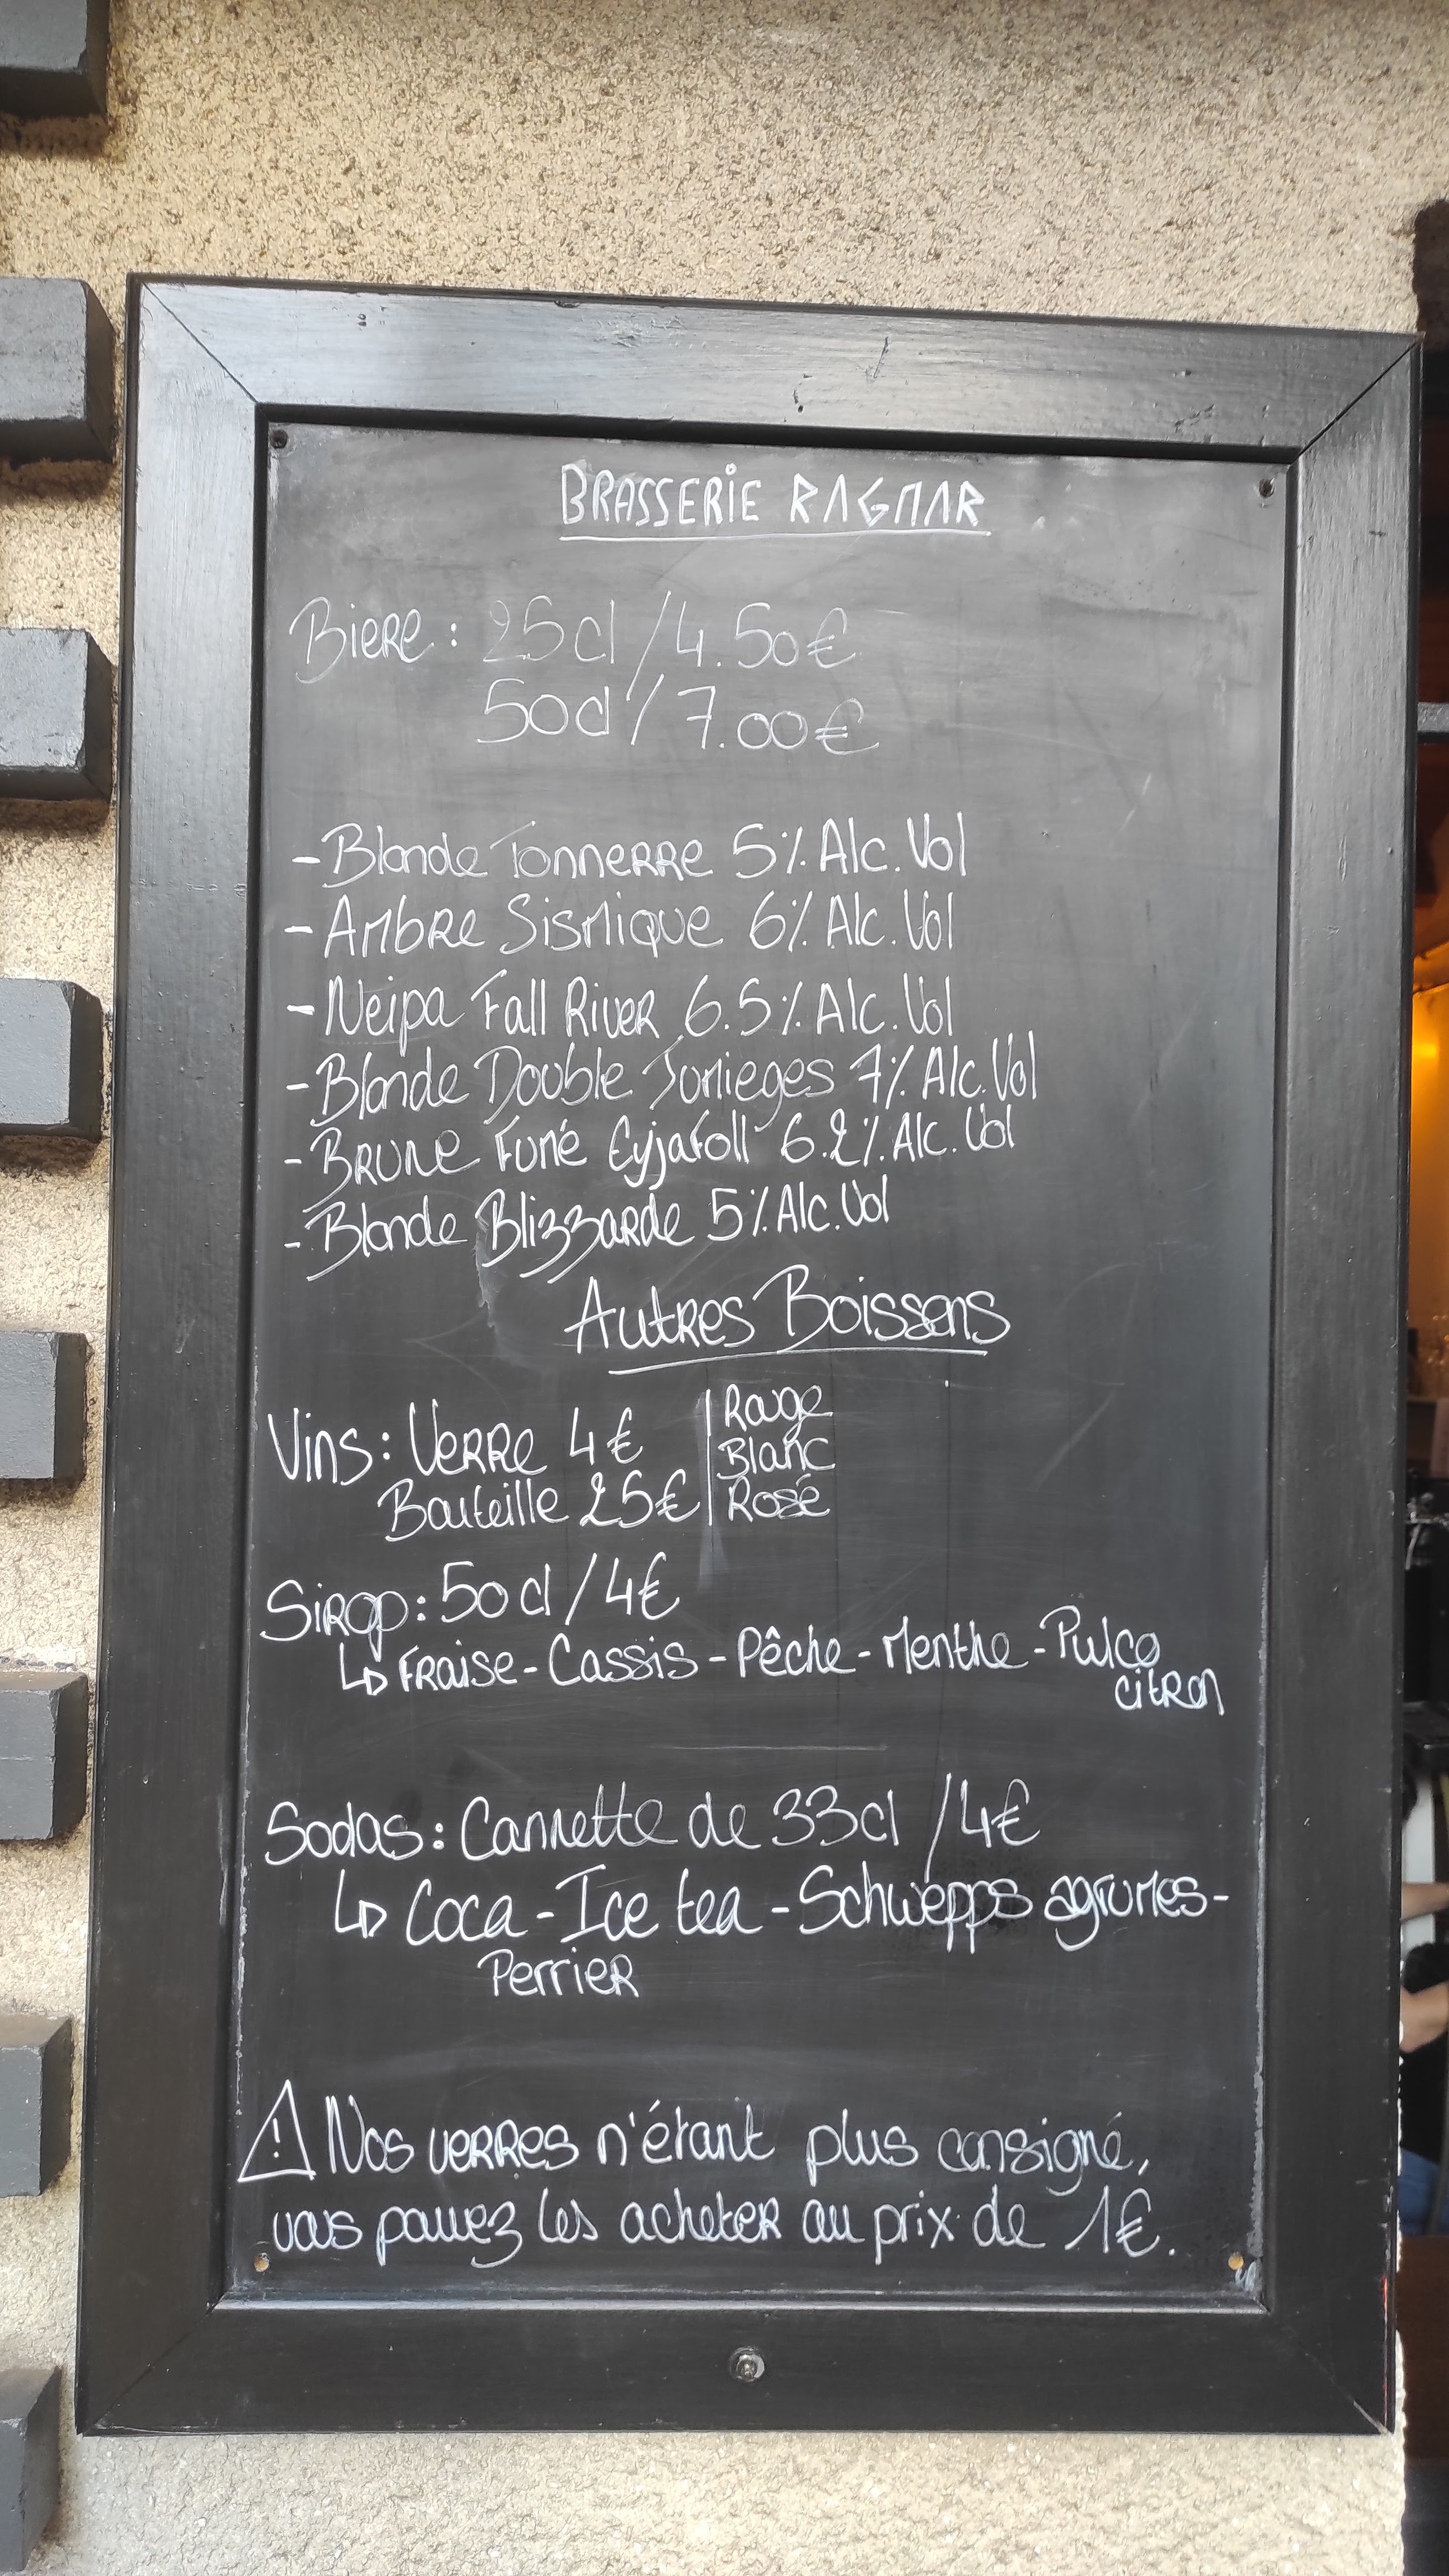 BRASSERIE RAGNAR
Biere : 25cl / 4.50€
50cl / 7.00€
- Blonde Tonnerre 5% Alc. Vol
- Ambre Sismique 6% Alc. Vol
- Neipa Fall River 6.5% Alc. Vol
- Blonde Double Jumieges 7% Alc. Vol
- Brune Fumé Eyjafoll 6.2% Alc. Vol
- Blonde Blizzarde 5% Alc. Vol
Autres Boissons
Vins : Verre 4€ | Rouge
Blanc
Bouteille 25€ | Rosé
Sirop : 50cl / 4€
↳ Fraise - Cassis - Pêche - Menthe - Pulco
citron
Sodas : Cannette de 33cl / 4€
↳ Coca - Ice tea - Schwepps agrumes -
Perrier
⚠ Nos verres n'étant plus consigné,
vous pouvez les acheter au prix de 1€.